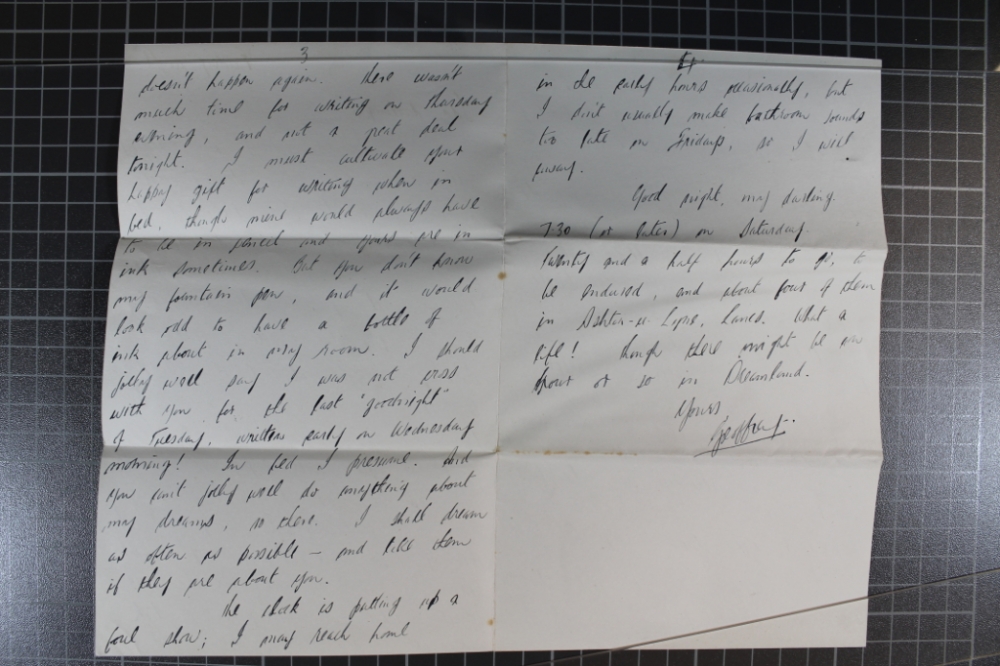 3
doesn't happen again. There wasn't
much time for writing on Thursday
evening, and not a great deal
tonight. I must cultivate your
happy gift for writing when in
bed, though mine would always have
to be in pencil and yours are in
ink sometimes. But you don't know
my fountain pen, and it would
look odd to have a bottle of
ink about in my room. I should
jolly well say I was not cross
with you for the last "goodnight"
of Tuesday, written early on Wednesday
morning! In bed I presume. And
you can't jolly well do anything about
my dreams, so there. I shall dream
as often as possible — and like them
if they are about you.
The clock is putting up a
foul show; I may reach home
4
in the early hours occasionally, but
I don't usually make bathroom sounds
too late on Fridays, so I will
away.
Good night, my darling.
7.30 (or later) on Saturday.
Twenty and a half hours to go, to
be endured, and about four of them
in Ashton-u-Lyne, Lancs. What a
life! Though there might be an
hour or so in Dreamland.
Yours,
Geoffrey.